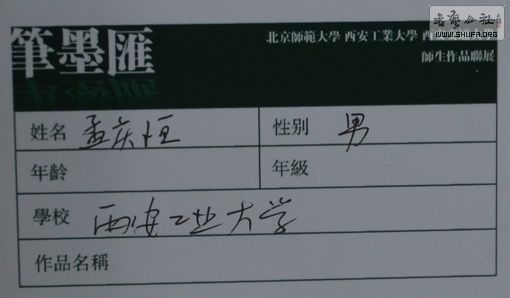 書藝公社
WWW.SHUFA.ORG
筆墨匯
北京師範大學 西安工業大學 西
師生作品聯展
姓名 孟庆恒 性别 男
年齡 年級
學校 西安工业大学
作品名稱